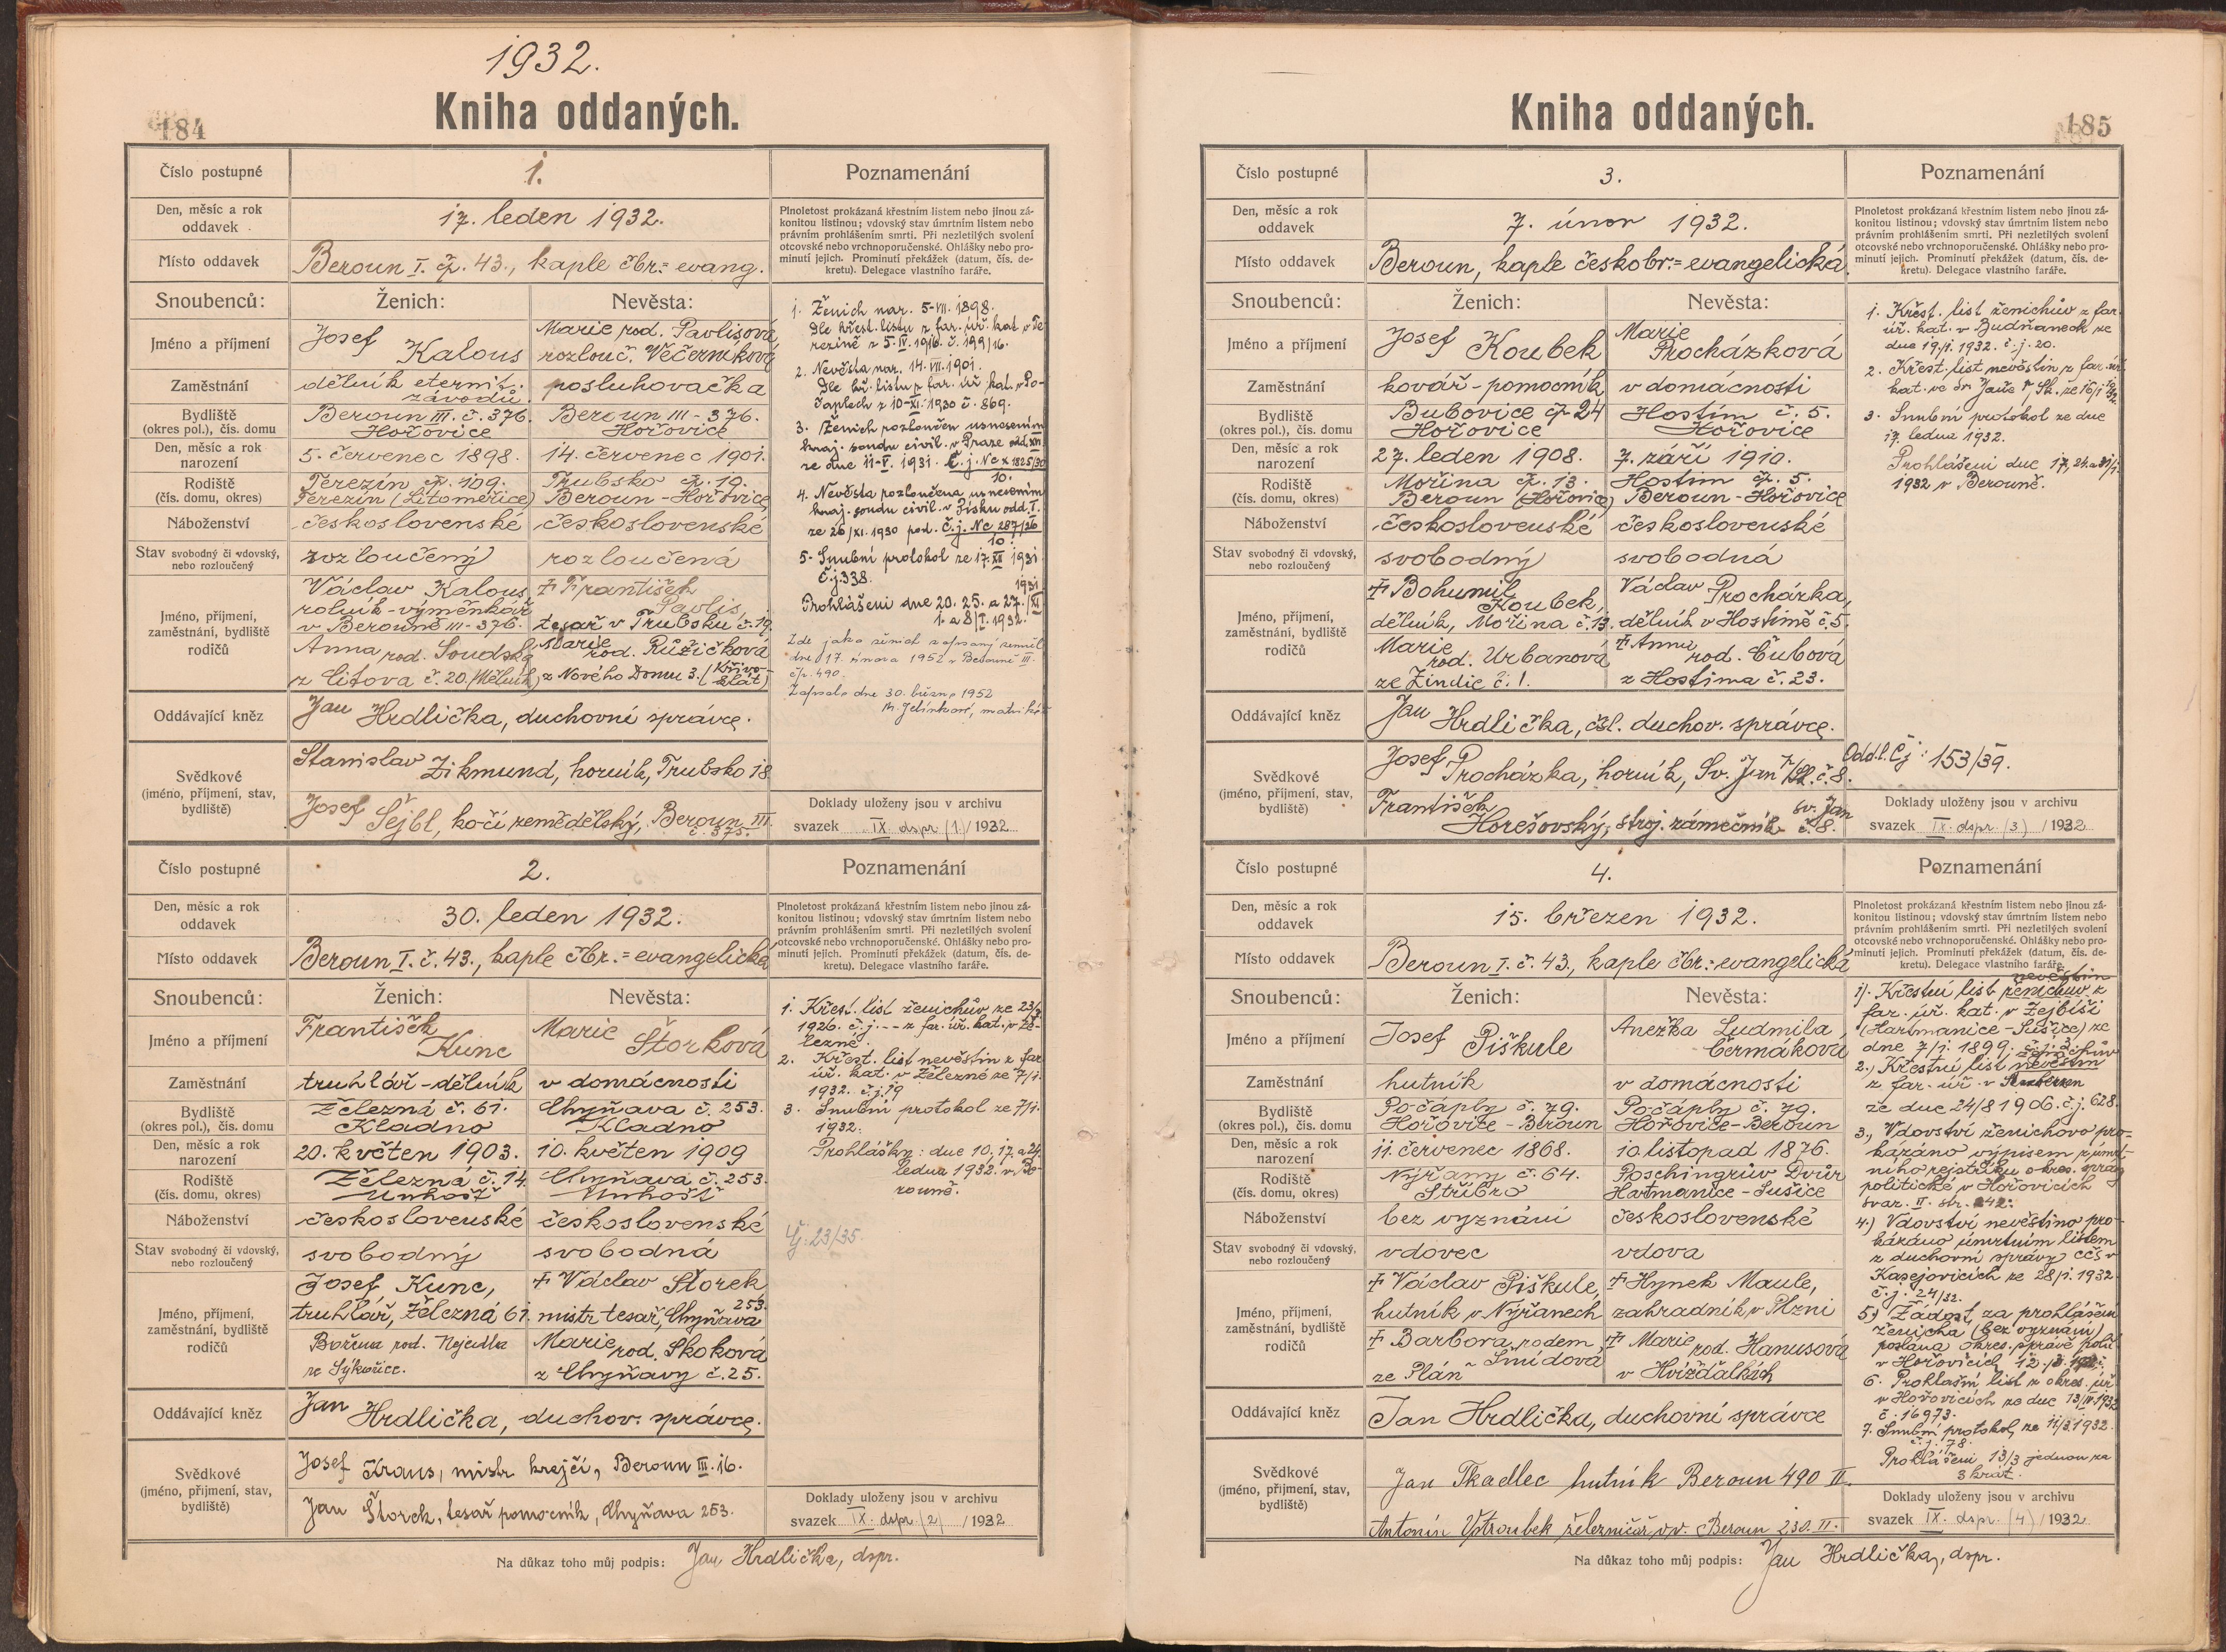 1932.
Kniha oddaných.
184
Číslo postupné
1.
Poznamenání
Den, měsíc a rok
oddavek
17. leden 1932.
Plnoletost prokázaná křestním listem nebo jinou zá-
konitou listinou; vdovský stav úmrtním listem nebo
právním prohlášením smrti. Při nezletilých svolení
otcovské nebo vrchnoporučenské. Ohlášky nebo pro-
minutí jejich. Prominutí překážek (datum, čís. de-
kretu). Delegace vlastního faráře.
Místo oddavek
Beroun I. čp. 43., kaple čbr.= evang.
Snoubenců:
Ženich:
Nevěsta:
Jméno a příjmení
Josef
Kalous
Marie roz. Pavlisová,
rozlouč. Večerníková
Zaměstnání
dělník eternit.
závodů.
posluhovačka
Bydliště
(okres pol.), čís. domu
Beroun III. č. 376.
Hořovice
Beroun III - 376.
Hořovice
Den, měsíc a rok
narození
5. červenec 1898.
14. červenec 1901.
Rodiště
(čís. domu, okres)
Terezín čp. 109.
Terezín (Litoměřice)
Trubsko čp. 19.
Beroun - Hořovice
Náboženství
československé
československé
Stav svobodný či vdovský,
nebo rozloučený
rozloučený
rozloučená
Jméno, příjmení,
zaměstnání, bydliště
rodičů
Václav Kalous,
rolník - výměnkář
v Berouně III - 376.
Anna rod. Soudská
z Litova č. 20. (Mělník)
† František
Pavlis,
tesař v Trubsku č. 19.
Marie
rod. Růžičková
z Nového Domu 3. (Křivo-
klát)
Oddávající kněz
Jan Hrdlička, duchovní správce.
Svědkové
(jméno, příjmení, stav,
bydliště)
Stanislav Zikmund, horník, Trubsko 18
Josef Šejbl, kočí zemědělský, Beroun III.
č. 375.
1. Ženich nar. 5-VII. 1898.
dle křest. listu z far. úř. kat. v Te
rezíně z 5. IV. 1916. č. 199/16.
2. Nevěsta nar. 14. VII. 1901.
dle kř. listu z far. úř. kat. v Po-
čaplech z 10-XI. 1930 č. 869.
3. Ženich rozloučen usnesením
kraj. soudu civil. v Praze odd. XII
ze dne 11-V. 1931. č. j. Nc X 1825/30
10.
4. Nevěsta rozloučena usnesením
kraj. soudu civil. v Písku odd. I.
ze 26/XI. 1930 pod. č. j. Nc 287/30
10.
5. Snubní protokol ze 17. XII 1931.
č. j. 338.
Prohlášeni dne 20. 25. a 27./XII 1931
1. a 8/I. 1932.
Zde jako ženich zapsaný zemřel
dne 17. února 1952 v Berouně III.
čp. 490.
Zapsalo dne 30. března 1952
M. Jelínková, matrikář
Doklady uloženy jsou v archivu
svazek IX. dspr. (1) / 1932
Číslo postupné
2.
Poznamenání
Den, měsíc a rok
oddavek
30. leden 1932.
Plnoletost prokázaná křestním listem nebo jinou zá-
konitou listinou; vdovský stav úmrtním listem nebo
právním prohlášením smrti. Při nezletilých svolení
otcovské nebo vrchnoporučenské. Ohlášky nebo pro-
minutí jejich. Prominutí překážek (datum, čís. de-
kretu). Delegace vlastního faráře.
Místo oddavek
Beroun I. č. 43., kaple čbr.= evangelická
Snoubenců:
Ženich:
Nevěsta:
Jméno a příjmení
František
Kunc
Marie
Štorková
Zaměstnání
truhlář - dělník
v domácnosti
Bydliště
(okres pol.), čís. domu
Železná č. 61.
Kladno
Chyňava č. 253.
Kladno
Den, měsíc a rok
narození
20. květen 1903.
10. květen 1909
Rodiště
(čís. domu, okres)
Železná č. 14
Unhošť
Chyňava č. 253.
Unhošť
Náboženství
československé
československé
Stav svobodný či vdovský,
nebo rozloučený
svobodný
svobodná
Jméno, příjmení,
zaměstnání, bydliště
rodičů
Josef Kunc,
truhlář, Železná 61.
Božena rod. Nejedlá
ze Sýkořice.
† Václav Štorek
mistr tesař, Chyňava 253.
Marie rod. Skoková
z Chyňavy č. 25.
Oddávající kněz
Jan Hrdlička, duchov. správce.
Svědkové
(jméno, příjmení, stav,
bydliště)
Josef Kraus, mistr krejčí, Beroun III. 16.
Jan Štorek, tesař pomocník, Chyňava 253.
1. Křest. list ženichův ze 23/7
1926. č. j. -- z far. úř. kat. v Že-
lezné.
2. Křest. list nevěstin z far
úř. kat. v Železné ze 7/1.
1932. č. j. 19
3. Snubní protokol ze 7/1.
1932.
Prohlášky: dne 10, 17. a 24.
ledna 1932. v Be-
rouně.
Čj: 23/35.
Doklady uloženy jsou v archivu
svazek IX. dspr. (2) / 1932
Na důkaz toho můj podpis: Jan Hrdlička, dspr.
Kniha oddaných.
185
Číslo postupné
3.
Poznamenání
Den, měsíc a rok
oddavek
7. únor 1932.
Plnoletost prokázaná křestním listem nebo jinou zá-
konitou listinou; vdovský stav úmrtním listem nebo
právním prohlášením smrti. Při nezletilých svolení
otcovské nebo vrchnoporučenské. Ohlášky nebo pro-
minutí jejich. Prominutí překážek (datum, čís. de-
kretu). Delegace vlastního faráře.
Místo oddavek
Beroun, kaple českobr.= evangelická.
Snoubenců:
Ženich:
Nevěsta:
Jméno a příjmení
Josef Koubek
Marie
Procházková
Zaměstnání
kovář - pomocník
v domácnosti
Bydliště
(okres pol.), čís. domu
Bubovice čp 24
Hořovice
Hostím č. 5.
Hořovice
Den, měsíc a rok
narození
27. leden 1908.
7. září 1910.
Rodiště
(čís. domu, okres)
Mořina čp. 13.
Beroun (Hořovice)
Hostím čp. 5.
Beroun - Hořovice
Náboženství
československé
československé
Stav svobodný či vdovský,
nebo rozloučený
svobodný
svobodná
Jméno, příjmení,
zaměstnání, bydliště
rodičů
† Bohumil
Koubek,
dělník, Mořina č. 13.
Marie
rod. Urbanová
ze Zindic č. 1.
Václav Procházka,
dělník v Hostimě č. 5.
† Anna
rod. Čubová
z Hostima č. 23.
Oddávající kněz
Jan Hrdlička, čsl. duchov. správce.
Svědkové
(jméno, příjmení, stav,
bydliště)
Josef Procházka, horník, Sv. Jan p/Sk. č. 8.
František
Horešovský, stroj. zámečník Sv. Jan
č. 8.
1. Křest. list ženichův z far.
úř. kat. v Budňanech ze
dne 19./1. 1932. č. j. 20.
2. Křest. list nevěstin z far. úř
kat. ve sv. Janě p. Sk. ze 16/1 1932.
3. Snubní protokol ze dne
17. ledna 1932.
Prohlášeni dne 17, 24. a 31/1.
1932 v Berouně.
Oddl. Čj: 153/39.
Doklady uloženy jsou v archivu
svazek IX. dspr. (3) / 1932
Číslo postupné
4.
Poznamenání
Den, měsíc a rok
oddavek
15. březen 1932.
Plnoletost prokázaná křestním listem nebo jinou zá-
konitou listinou; vdovský stav úmrtním listem nebo
právním prohlášením smrti. Při nezletilých svolení
otcovské nebo vrchnoporučenské. Ohlášky nebo pro-
minutí jejich. Prominutí překážek (datum, čís. de-
kretu). Delegace vlastního faráře.
Místo oddavek
Beroun I. č. 43., kaple čbr.= evangelická
Snoubenců:
Ženich:
Nevěsta:
Jméno a příjmení
Josef Piškule
Anežka Ludmila
Čermáková
Zaměstnání
hutník
v domácnosti
Bydliště
(okres pol.), čís. domu
Počáply č. 79.
Hořovice - Beroun
Počáply č. 79.
Hořovice - Beroun
Den, měsíc a rok
narození
11. červenec 1868.
10. listopad 1876.
Rodiště
(čís. domu, okres)
Nýřany č. 64.
Stříbro
Poschingrův Dvůr
Hartmanice - Sušice
Náboženství
bez vyznání
československé
Stav svobodný či vdovský,
nebo rozloučený
vdovec
vdova
Jméno, příjmení,
zaměstnání, bydliště
rodičů
† Václav Piškule,
hutník v Nýřanech
† Barbora, rodem
Šmídová
ze Plán
† Hynek Maule,
zahradník v Plzni
† Marie rod. Hanusová
v Hvížďalkách
Oddávající kněz
Jan Hrdlička, duchovní správce
Svědkové
(jméno, příjmení, stav,
bydliště)
Jan Tkadlec hutník Beroun 490 II.
Antonín Vstroubek železničář v.v. Beroun 230. II.
nevěstin
1). Křestní list ženichův z
far. úř. kat. v Zejbiši
(Hartmanice - Sušice) ze
dne 7/1. 1899. č. j. 3.
ženichův
2.) Křestní list nevěstin
z far. úř. v
ze dne 24/8 1906. č. j. 628.
3., Vdovství ženichovo pro-
kázáno výpisem z úmrt-
ního rejstříku okres. správy
politické v Hořovicích
svaz. II. str. 242.
4.) Vdovství nevěstino pro-
kázáno úmrtním listem
z duchovní správy CČS v
Kasejovicích ze 28/1. 1932
č. j. 24/32.
5.) Žádost za prohlášení
ženicha (bez vyznání)
poslána okres. správě polit
v Hořovicích
6. Prohlašní list z okres. úř.
v Hořovicích ze dne 13/III 1932
č. 16973.
7. Snubní protokol ze 11/3. 1932.
č. j. 78.
Prohlášeni 13/3 jednou za
3 krát.
Doklady uloženy jsou v archivu
svazek IX. dspr. (4) / 1932
Na důkaz toho můj podpis: Jan Hrdlička, dspr.